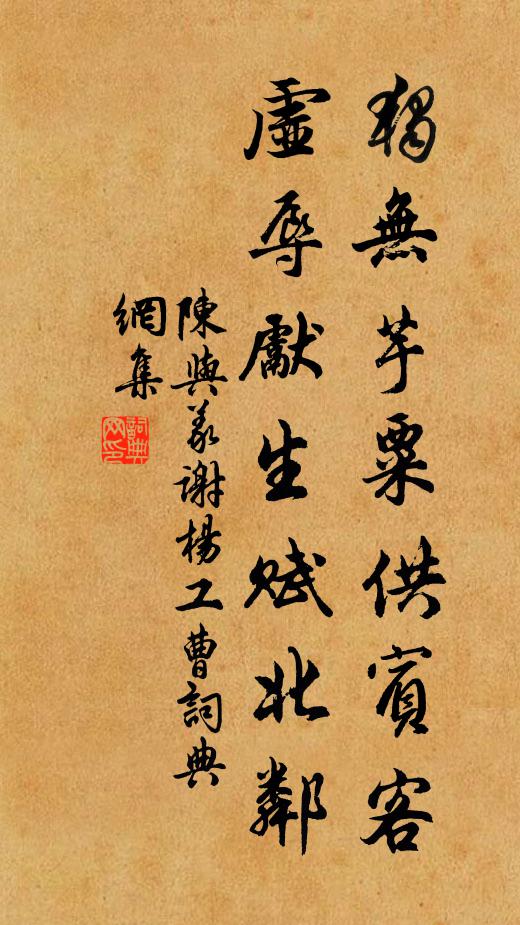 獨無芋粟供賓客
虛辱獻生賦北鄰
陳與義謝楊工曹詞典
網集
詞典网印